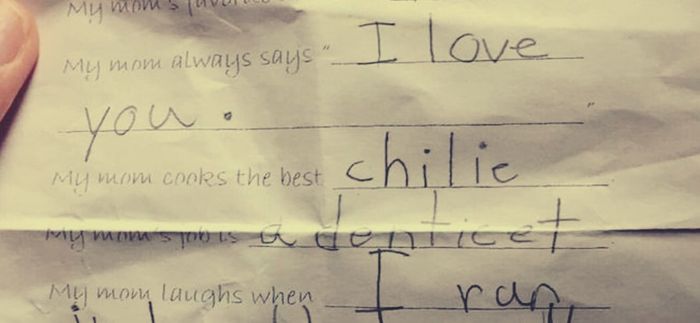 My mom's favorite
My mom always says " I love
you. "
My mom cooks the best chilie
My mom's job is a denticet
My mom laughs when I ran